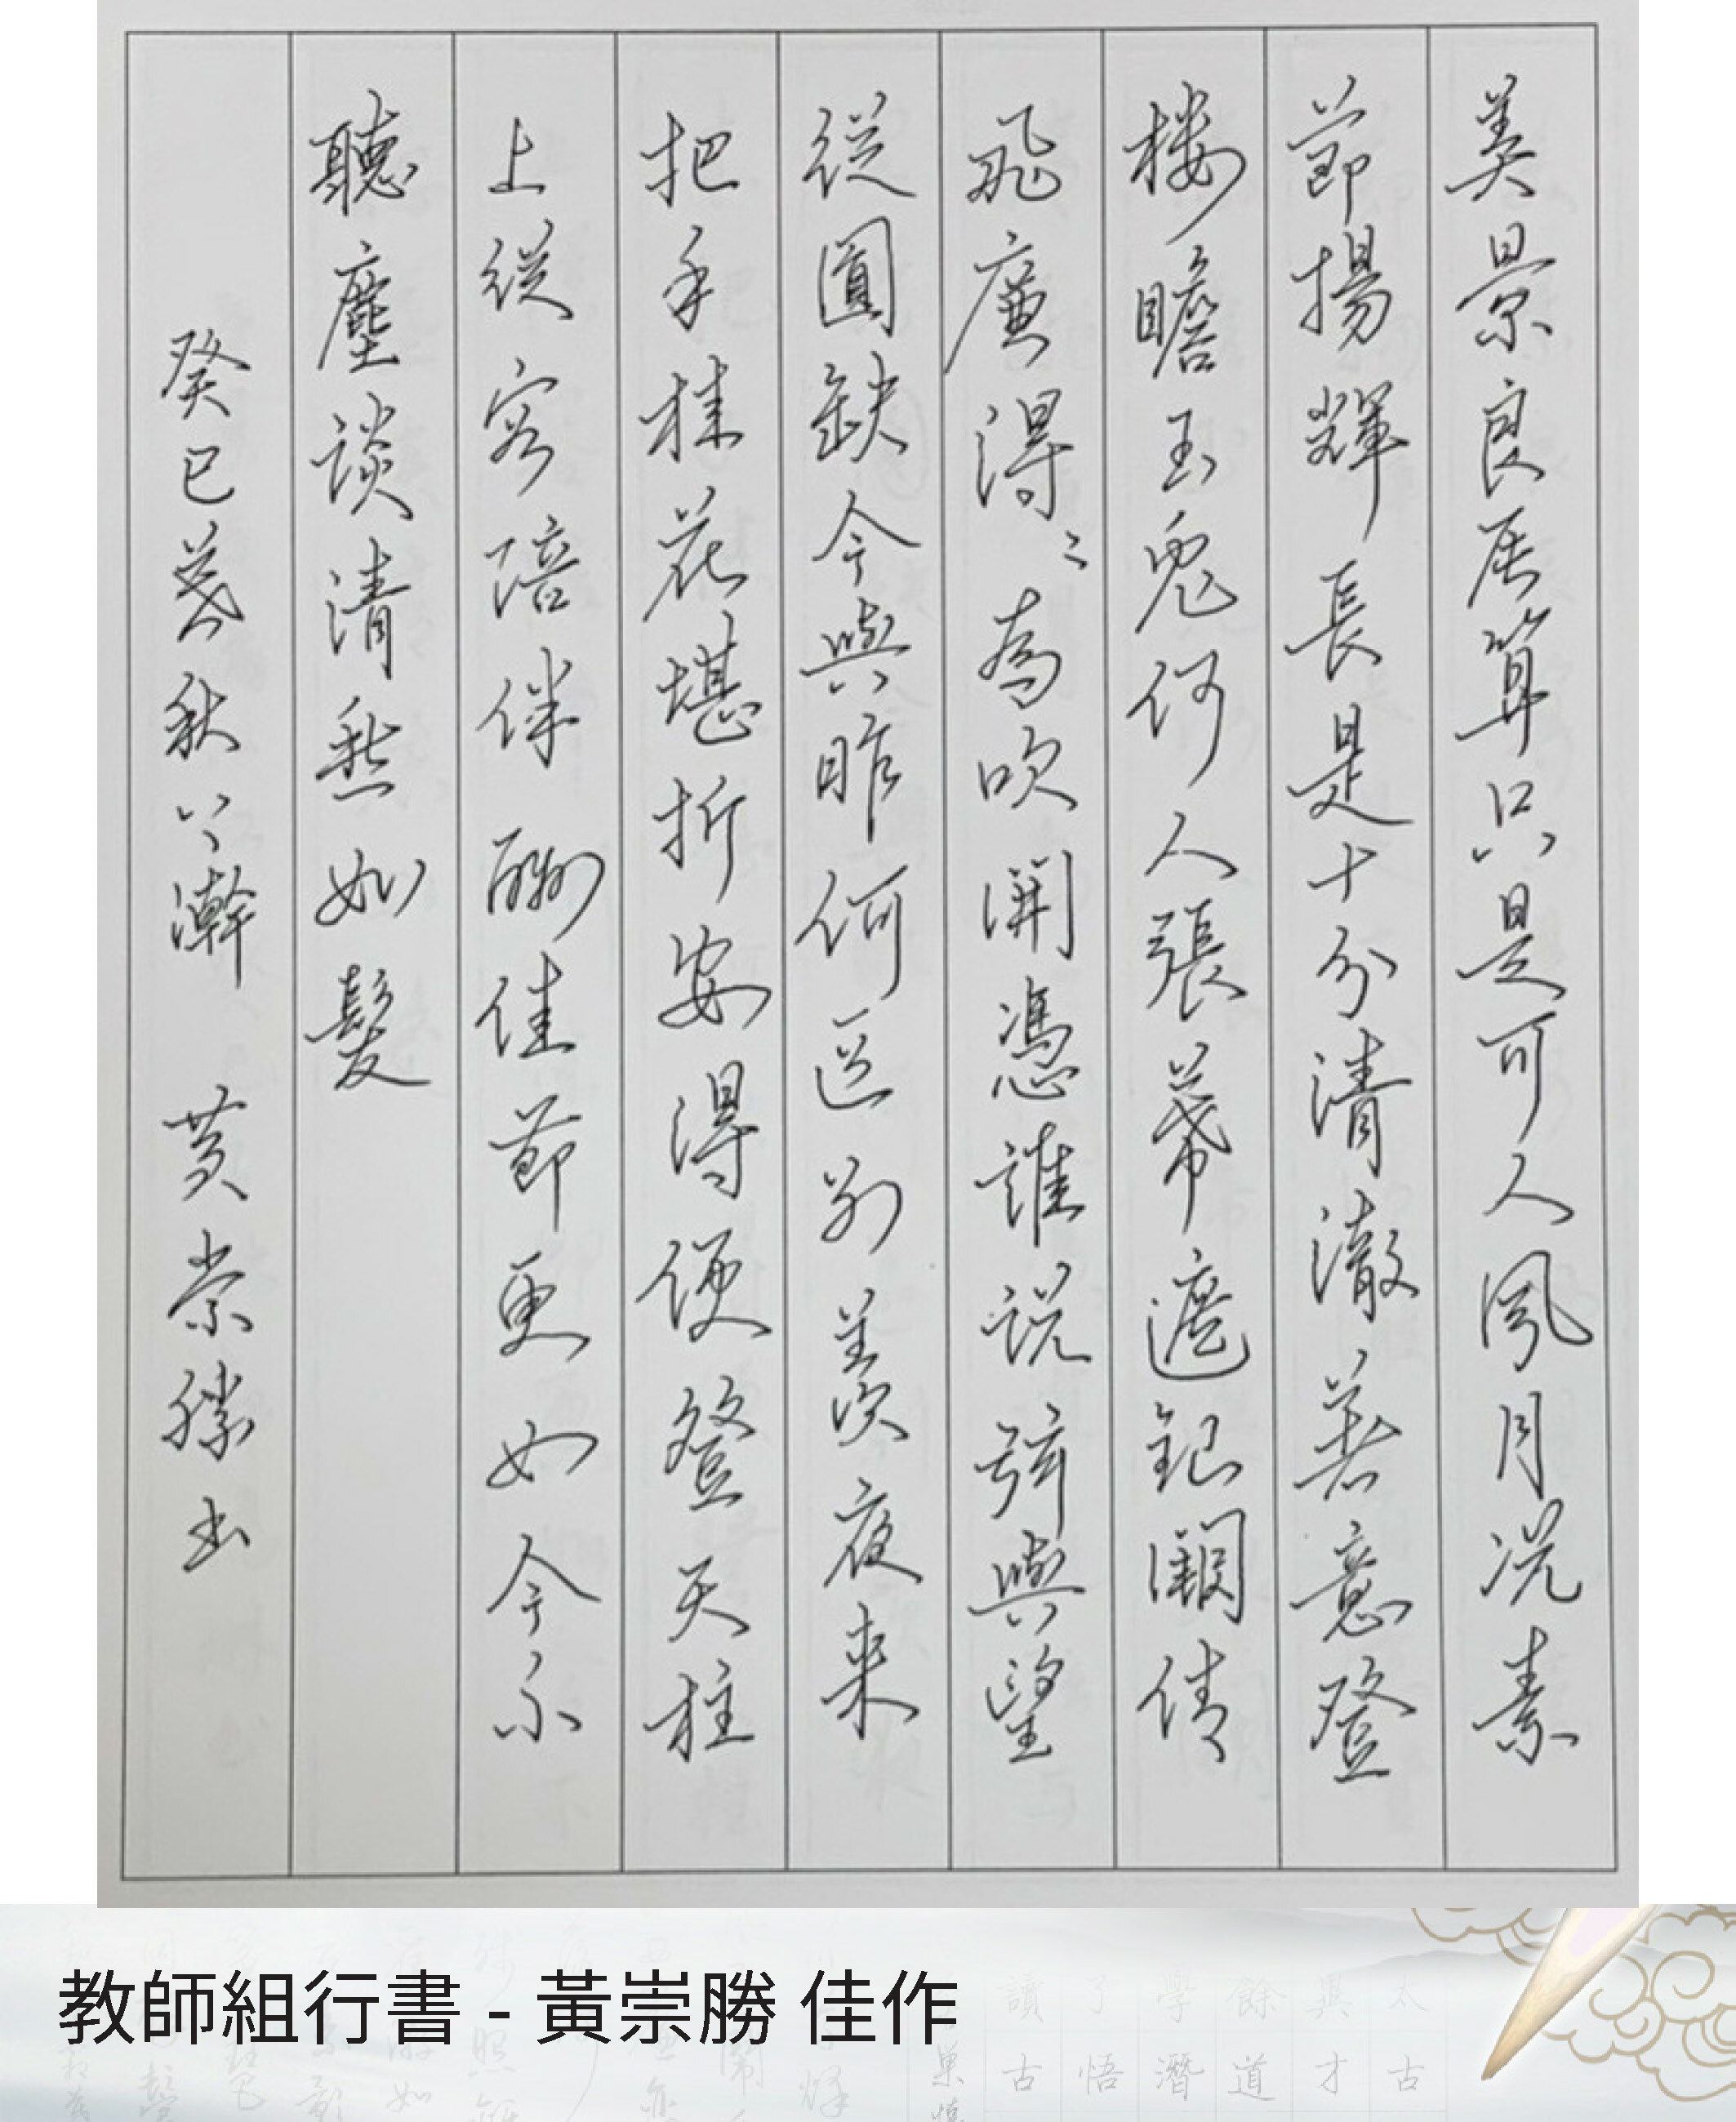 美景良辰算只是可人風月況素
節揚輝長是十分清澈著意登
樓瞻玉兔何人張幕遮銀闕倩
飛廉得〻為吹開憑誰說弦與望
從圓缺今與昨何區別羨夜來
把手桂花堪折安得便登天柱
上從容陪伴酬佳節更如今不
聽麈談清愁如髮
癸巳暮秋 黃崇勝書
教師組行書 - 黃崇勝 佳作
讀了學餘與太
古悟潛道才古